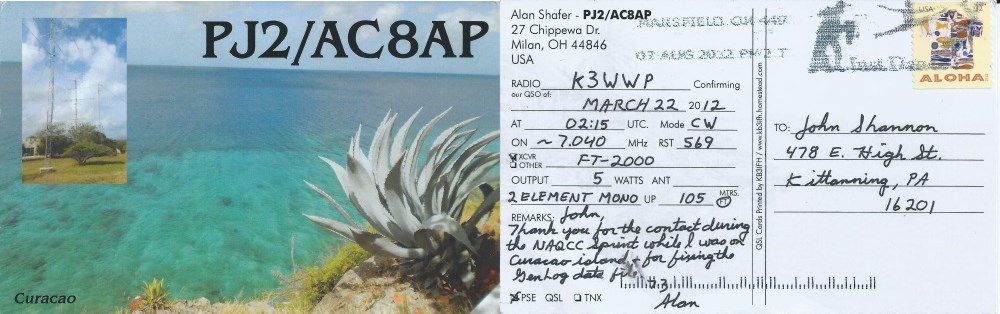 PJ2/AC8AP
Curacao
Alan Shafer - PJ2/AC8AP
27 Chippewa Dr.
Milan, OH 44846
USA
RADIO K3WWP Confirming
our QSO of: MARCH 22 2012
AT 02:15 UTC. Mode CW
ON ~7.040 MHz RST 569
XCVR
OTHER FT-2000
OUTPUT 5 WATTS ANT
2 ELEMENT MONO UP 105 MTRS. FT
REMARKS: John,
Thank you for the contact during
the NAQCC Sprint while I was on
Curacao island + for fixing the
Genlog data
73
PSE QSL TNX
Alan
QSL Cards Printed by KB3IFH / www.kb3ifh.homestead.com
MANSFIELD, OH 449
07 AUG 2012 PM 2 T
USA
ALOHA!
TO: John Shannon
478 E. High St.
Kittanning, PA
16201